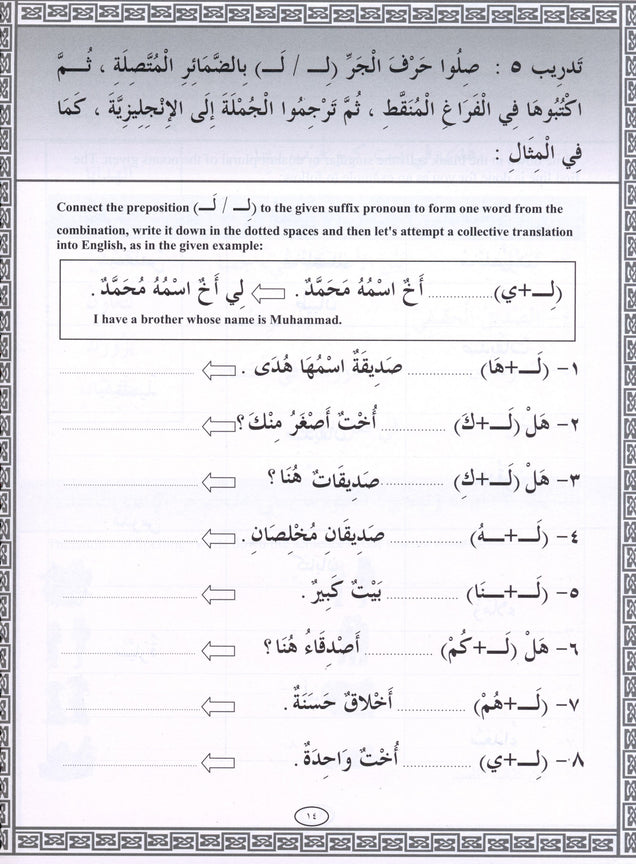 تَدرِيب ٥ : صِلُوا حَرْفَ الْجَرِّ (لِــ / لَــ) بِالضَّمَائِرِ الْمُتَّصِلَة ، ثُــمَّ
اكْتُبُوهَا فِي الْفَرَاغِ الْمُنَقَّطِ ، ثُمَّ تَرْجِمُوا الْجُمْلَةَ إِلَى الإِنْجِلِيزِيَّةَ ، كَمَا
فِي الْمِثَالِ :
Connect the preposition (لِــ / لَــ) to the given suffix pronoun to form one word from the
combination, write it down in the dotted spaces and then let's attempt a collective translation
into English, as in the given example:
(لِــ+ي)................ أَخٌ اسْمُهُ مَحَمَّدٌ . ⇦ لِي أَخٌ اسْمُهُ مُحَمَّدٌ .
I have a brother whose name is Muhammad.
١- (لَــ+هَا) ................ صَدِيقَةٌ اسْمُهَا هُدَى . ⇦ ................................
٢- هَلْ (لَــ+كَ) ................ أُخْتٌ أَصْغَرُ مِنْكَ؟ ⇦ ................................
٣- هَلْ (لَــ+كِ) ................ صَدِيقَاتٌ هُنَا؟ ⇦ ................................
٤- (لَــ+ــهُ) ................ صَدِيقَانِ مُخْلِصَانِ . ⇦ ................................
٥- (لَــ+ــنَا) ................ بَيْتٌ كَبِيرٌ . ⇦ ................................
٦- هَلْ (لَــ+كُمْ) ................ أَصْدِقَاءُ هُنَا؟ ⇦ ................................
٧- (لَــ+هُمْ) ................ أَخْلاقٌ حَسَنَةٌ . ⇦ ................................
٨- (لِــ+ي) ................ أُخْتٌ وَاحِدَةٌ . ⇦ ................................
١٤